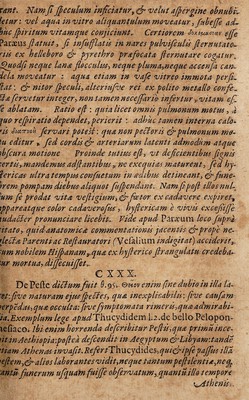 tant. Nam si speculum inficiatur, & velut aspergine obnubi-
letur: vel aqua in vitro aliquantulum moveatur, subesse ad-
huc spiritum vitamque conjiciunt. Certiorem esse
Paræus statuit, si insufflati in nares pulvisculi sternutato-
rii ex helleboro & pyrethro prafocata sternutare cogatur,
Quodsi neque lana flocculus, neque pluma, neque accensa can-
dela moveatur: aqua etiam in vase vitreo immota persi-
stat: & nitor speculi, alteriusve rei ex polito metallo confe-
cta servatur integer, non tamen necessario infertur, vitam es-
se ablatam. Ratio est: quia licet omnis pulmonum motus, à
quo respiratio dependet, perierit: adhuc tamen interna calo-
ris servari potest: qua non pectoris & pulmonum mo-
tu editur, sed cordis & arteriarum latenti admodum atque
obscura motione Proinde tutius est, ut deficientibus signis
certis, mandemus adstantibus, ne exequias maturent, sed hy-
stericas ultra tempus consuetum in adibus detineant, & fune-
rem pompam diebus aliquot suspendant. Nam si post illos nul-
lum se prodat vita vestigium, & fœtor ex cadavere expiret,
apparatque color cadaverosus, hystericam è vivis excessisse
audacter pronunciare licebit. Vide apud Paræum loco supra
citato, quid anatomica commentationis jacentis & propè ne-
glecta Parenti ac Restauratori (Vesalium indigitat) acciderit,
cum nobilem Hispanam, qua ex hysterico strangulatu credeba-
tur mortua, dissecuisset.
CXXX.
De Peste dictum fuit §. 95. enim sine dubio in illa la-
tet: sive naturam ejus spectes, qua inexplicabilis: sive causam
perpendas, qua occulta: sive symptomata rimeris, qua admirabi-
lia. Exemplum lege apud Thucydidem l. 2. de bello Pelopon-
nesiaco. Ibi enim horrenda describitur Pestis, qua primùm ince-
pit in Aethiopia: post eà descendit in Aegyptum & Libyam: tandē
etiam Athenas invasit. Refert Thucydides, quod ipse passus illā
pestem, & alios laborantes vidit, neque tantum pestilentia, neq́
tantū funerum usquam fuisse observatum, quantū illo tempore
Athenis.